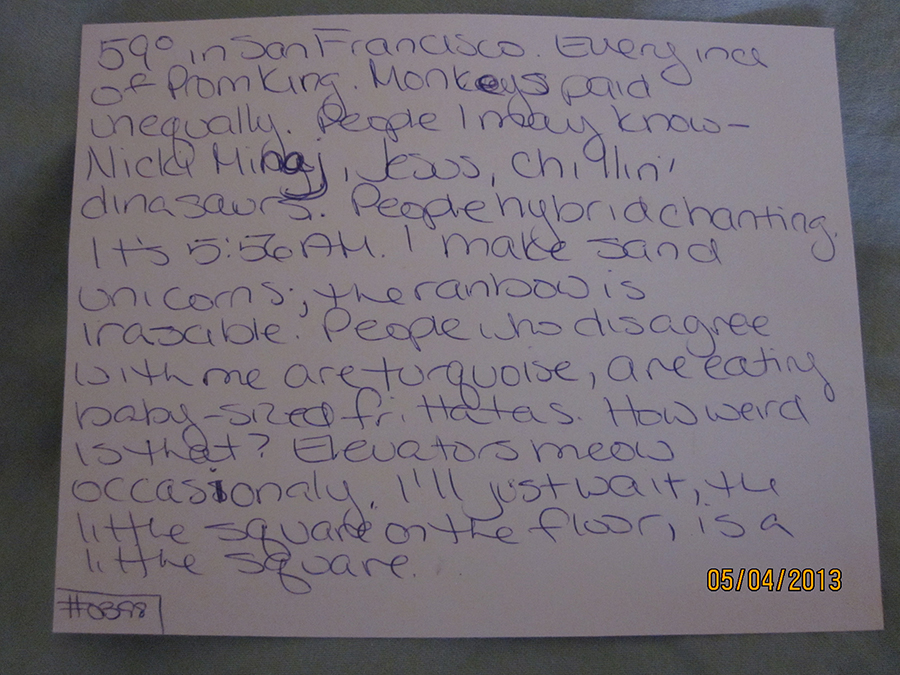 59° in San Francisco. Every inch
of Prom King. Monkeys paid
unequally. People I may know-
Nicki Minaj, Jesus, Chillin'
dinasaurs. People hybrid chanting.
It's 5:56 AM. I make sand
unicorns; the rainbow is
irascible. People who disagree
with me are turquoise, are eating
baby-sized frittatas. How weird
is that? Elevators meow
occasionaly. I'll just wait, the
little square on the floor, is a
little square.
05/04/2013
#0398